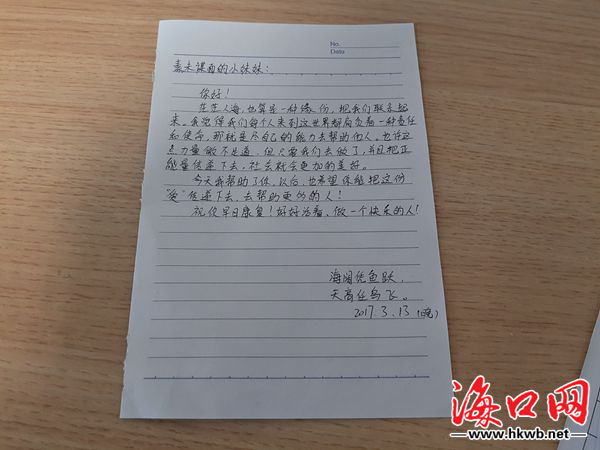 No.
Date
素未谋面的小妹妹：
你好！
茫茫人海，也算是一种缘份，把我们联系起
来。我觉得我们每个人来到这世界都肩负着一种责任
和使命，那就是尽自己的能力去帮助他人。也许这
点力量微不足道，但只要我们去做了，并且把正
能量传递下去，社会就会更加的美好。
今天我帮助了你，以后，也希望你能把这份
"爱"传递下去，去帮助更多的人！
祝你早日康复！好好活着、做一个快乐的人！
海阔凭鱼跃，
天高任鸟飞。
2017.3.13(晚)
海口网
www.hkwb.net